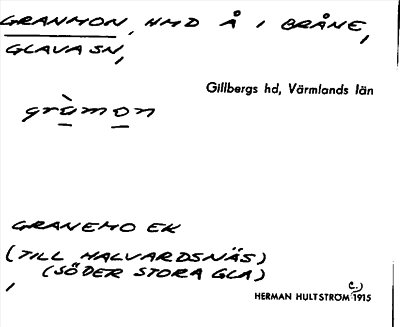 GRANMON, HMD Å I BRÅNE,
GLAVA SN,
Gillbergs hd, Värmlands län
gràmon
GRANEMO EK
(TILL HALVARDSNÄS)
(SÖDER STORA GLA)
HERMAN HULTSTRÖM (C.) 1915